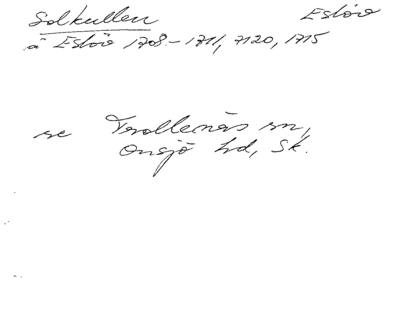 Solkullen Eslöv
å Eslöv 1708-1711, 7120, 1715
se Trollenäs sn,
Onsjö hd, Sk.